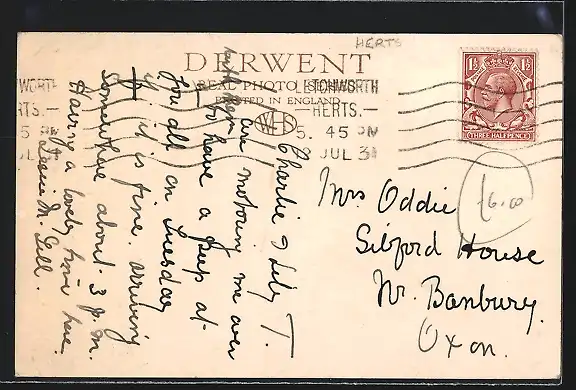 HERTS
DERWENT
REAL PHOTO
PRINTED IN ENGLAND
LETCHWORTH
HERTS.
5. 45 PM
JUL 3
1½ 1½
THREE HALFPENCE
£6.00
Mrs Oddie
Sibford House
Nr. Banbury.
Oxon.
Charlie & Lily T.
are motoring me over
to have a peep at
you all on Tuesday
if it is fine. arriving
somewhere about 3 p.m.
Having a lovely time here.
M. Gell.